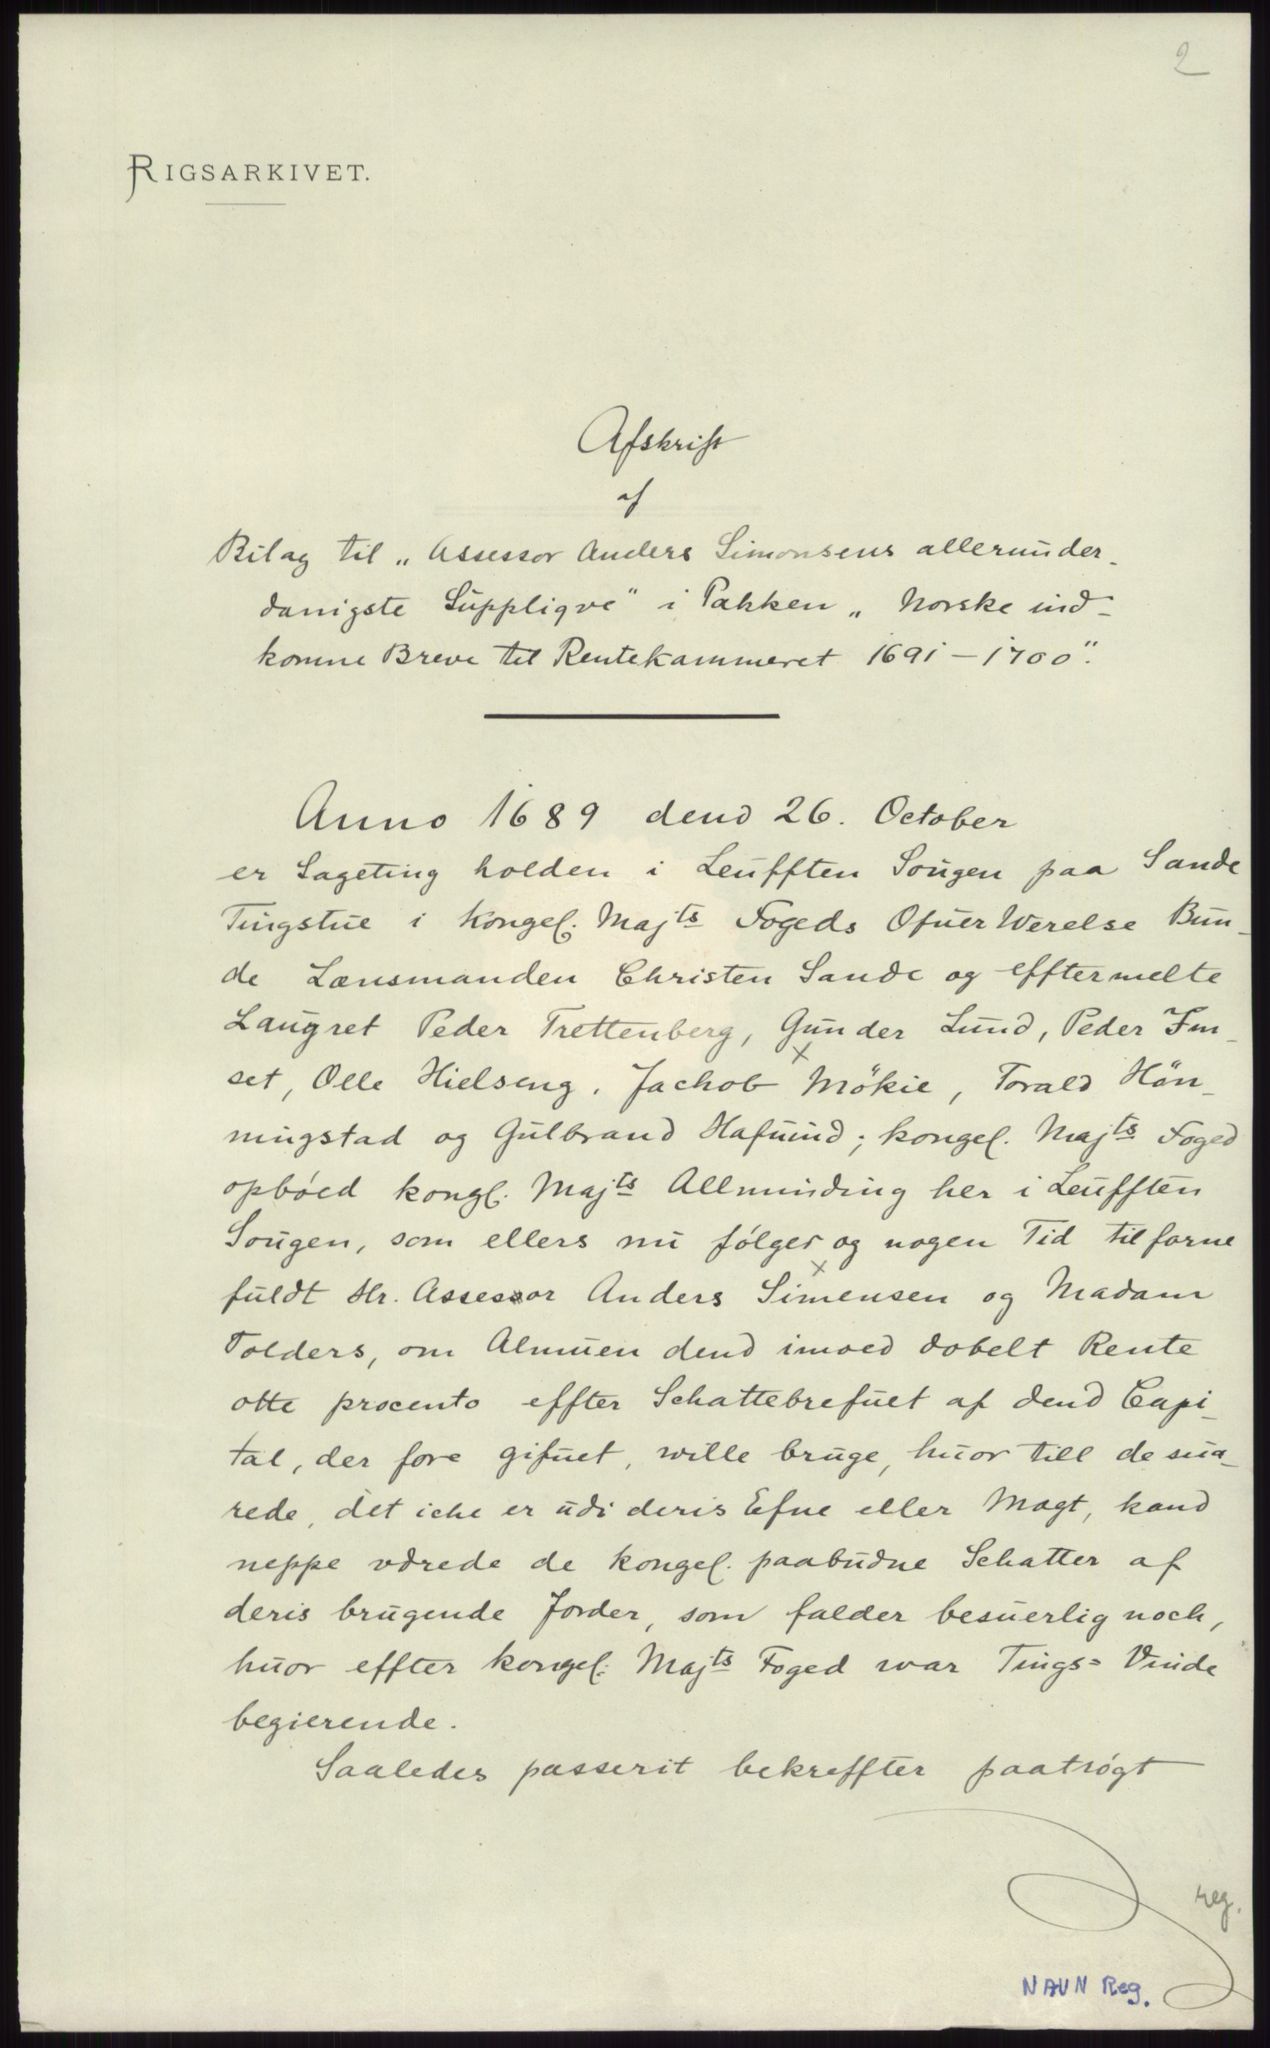 2
RIGSARKIVET.
Afskrift
af
Bilag til „Assessor Anders Simonsens allerunder-
danigste Süppliqve" i Pakken „Norske ind-
komne Breve til Rentekammeret 1691-1700".
Anno 1689 dend 26. October
er Sageting holden i Leüfften Soügen paa Sande
Tingstüe i Kongel. Majts Fogeds Ofüer Werelse Bün-
de Lænsmanden Christen Sande og efftermelte
Laügret Peder Trettenberg, Günder Lünd, Peder Im-
set, Olle Hielseng, Jachob Mökie, Torald Hön-
ningstad og Gülbrand Hafüind; kongel. Majts Foged
opböed kongl. Majts Allminding her i Leüfften
Soügen, som ellers nü fölger og nogen Tid tilforne
füldt Hr. Assessor Anders Simensen og Madam
Tolders, om Almüen dend imoed dobelt Rente
otte procento effter Schattebrefüet af dend Capi-
tal, der fore gifüet, wille brüge, hüor till de süa-
rede, det iche er üdi deris Efne eller Magt, kand
neppe værede de kongel. paabüdne Schatter af
deris brügende Jorder, som falder besüerlig noch,
hüor effter kongel. Majts Foged war Tings= Vinde
begierende.
Saaledes passerit bekreffter paatrögt
reg.
NAVN Reg.